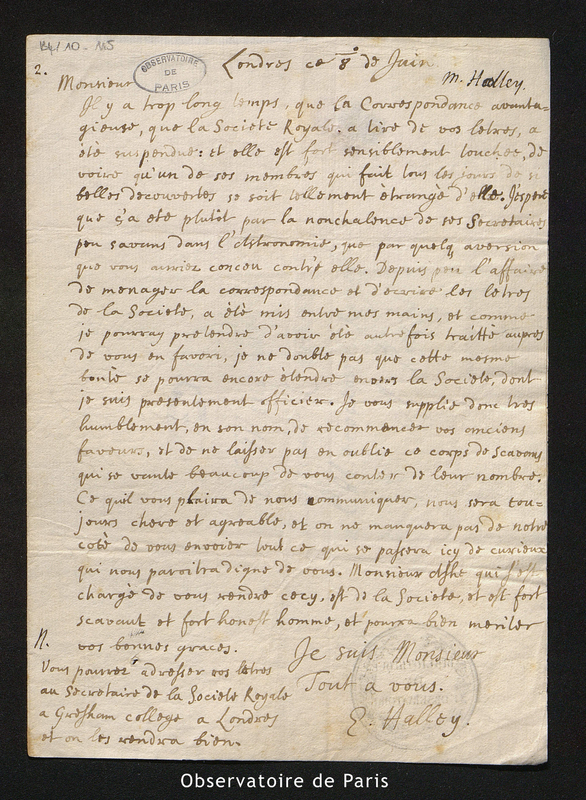 B4/10-115
2.
OBSERVATOIRE
DE
PARIS
Londres ce 8° de Juin
Monsieur
M. Halley.
Il y a trop long temps, que la Correspondance avanta-
gieuse, que la Societé Royale a tire de vos letres, a
été suspendue: et elle est fort sensiblement touchee, de
voire qu'un de ses membres qui fait tous les jours de si
belles decouvertes se soit tellement étrangé d'elle. J'espere
que ç'a eté plutôt par la nonchalence de ses Secretaires
peu savans dans l'Astronomie, que par quelq aversion
que vous auriez conceu contre elle. Depuis peu l'affaire
de menager la correspondance et d'écrire les letres
de la Societe, a été mis entre mes mains, et comme
je pourray pretendre d'avoir été autrefois traitté aupres
de vous en favori, je ne double pas que cette mesme
bonté se pourra encore étendre envers la Societé, dont
je suis presentement officier. Je vous supplie donc tres
humblement, en son nom, de recommencer vos anciens
faveurs, et de ne laisser pas en oublie ce corps de Scavans
qui se vante beaucoup de vous conter de leur nombre.
Ce quil vous plaira de nous communiquer, nous sera tou-
jours chere et agreable, et on ne manquera pas de notre
coté de vous envoier tout ce qui se passera icy de curieux
qui nous paroitra digne de vous. Monsieur Ashe qui s'est
chargé de vous rendre cecy, est de la Societe, et est fort
scavant et fort honest homme, et pourra bien meriter
vos bonnes graces.
Je suis Monsieur
Tout a vous.
E. Halley.
N.
Vous pourrez adresser vos letres
au Secretaire de la Societe Royale
a Gresham college a Londres
et on les rendra bien.
Observatoire de Paris